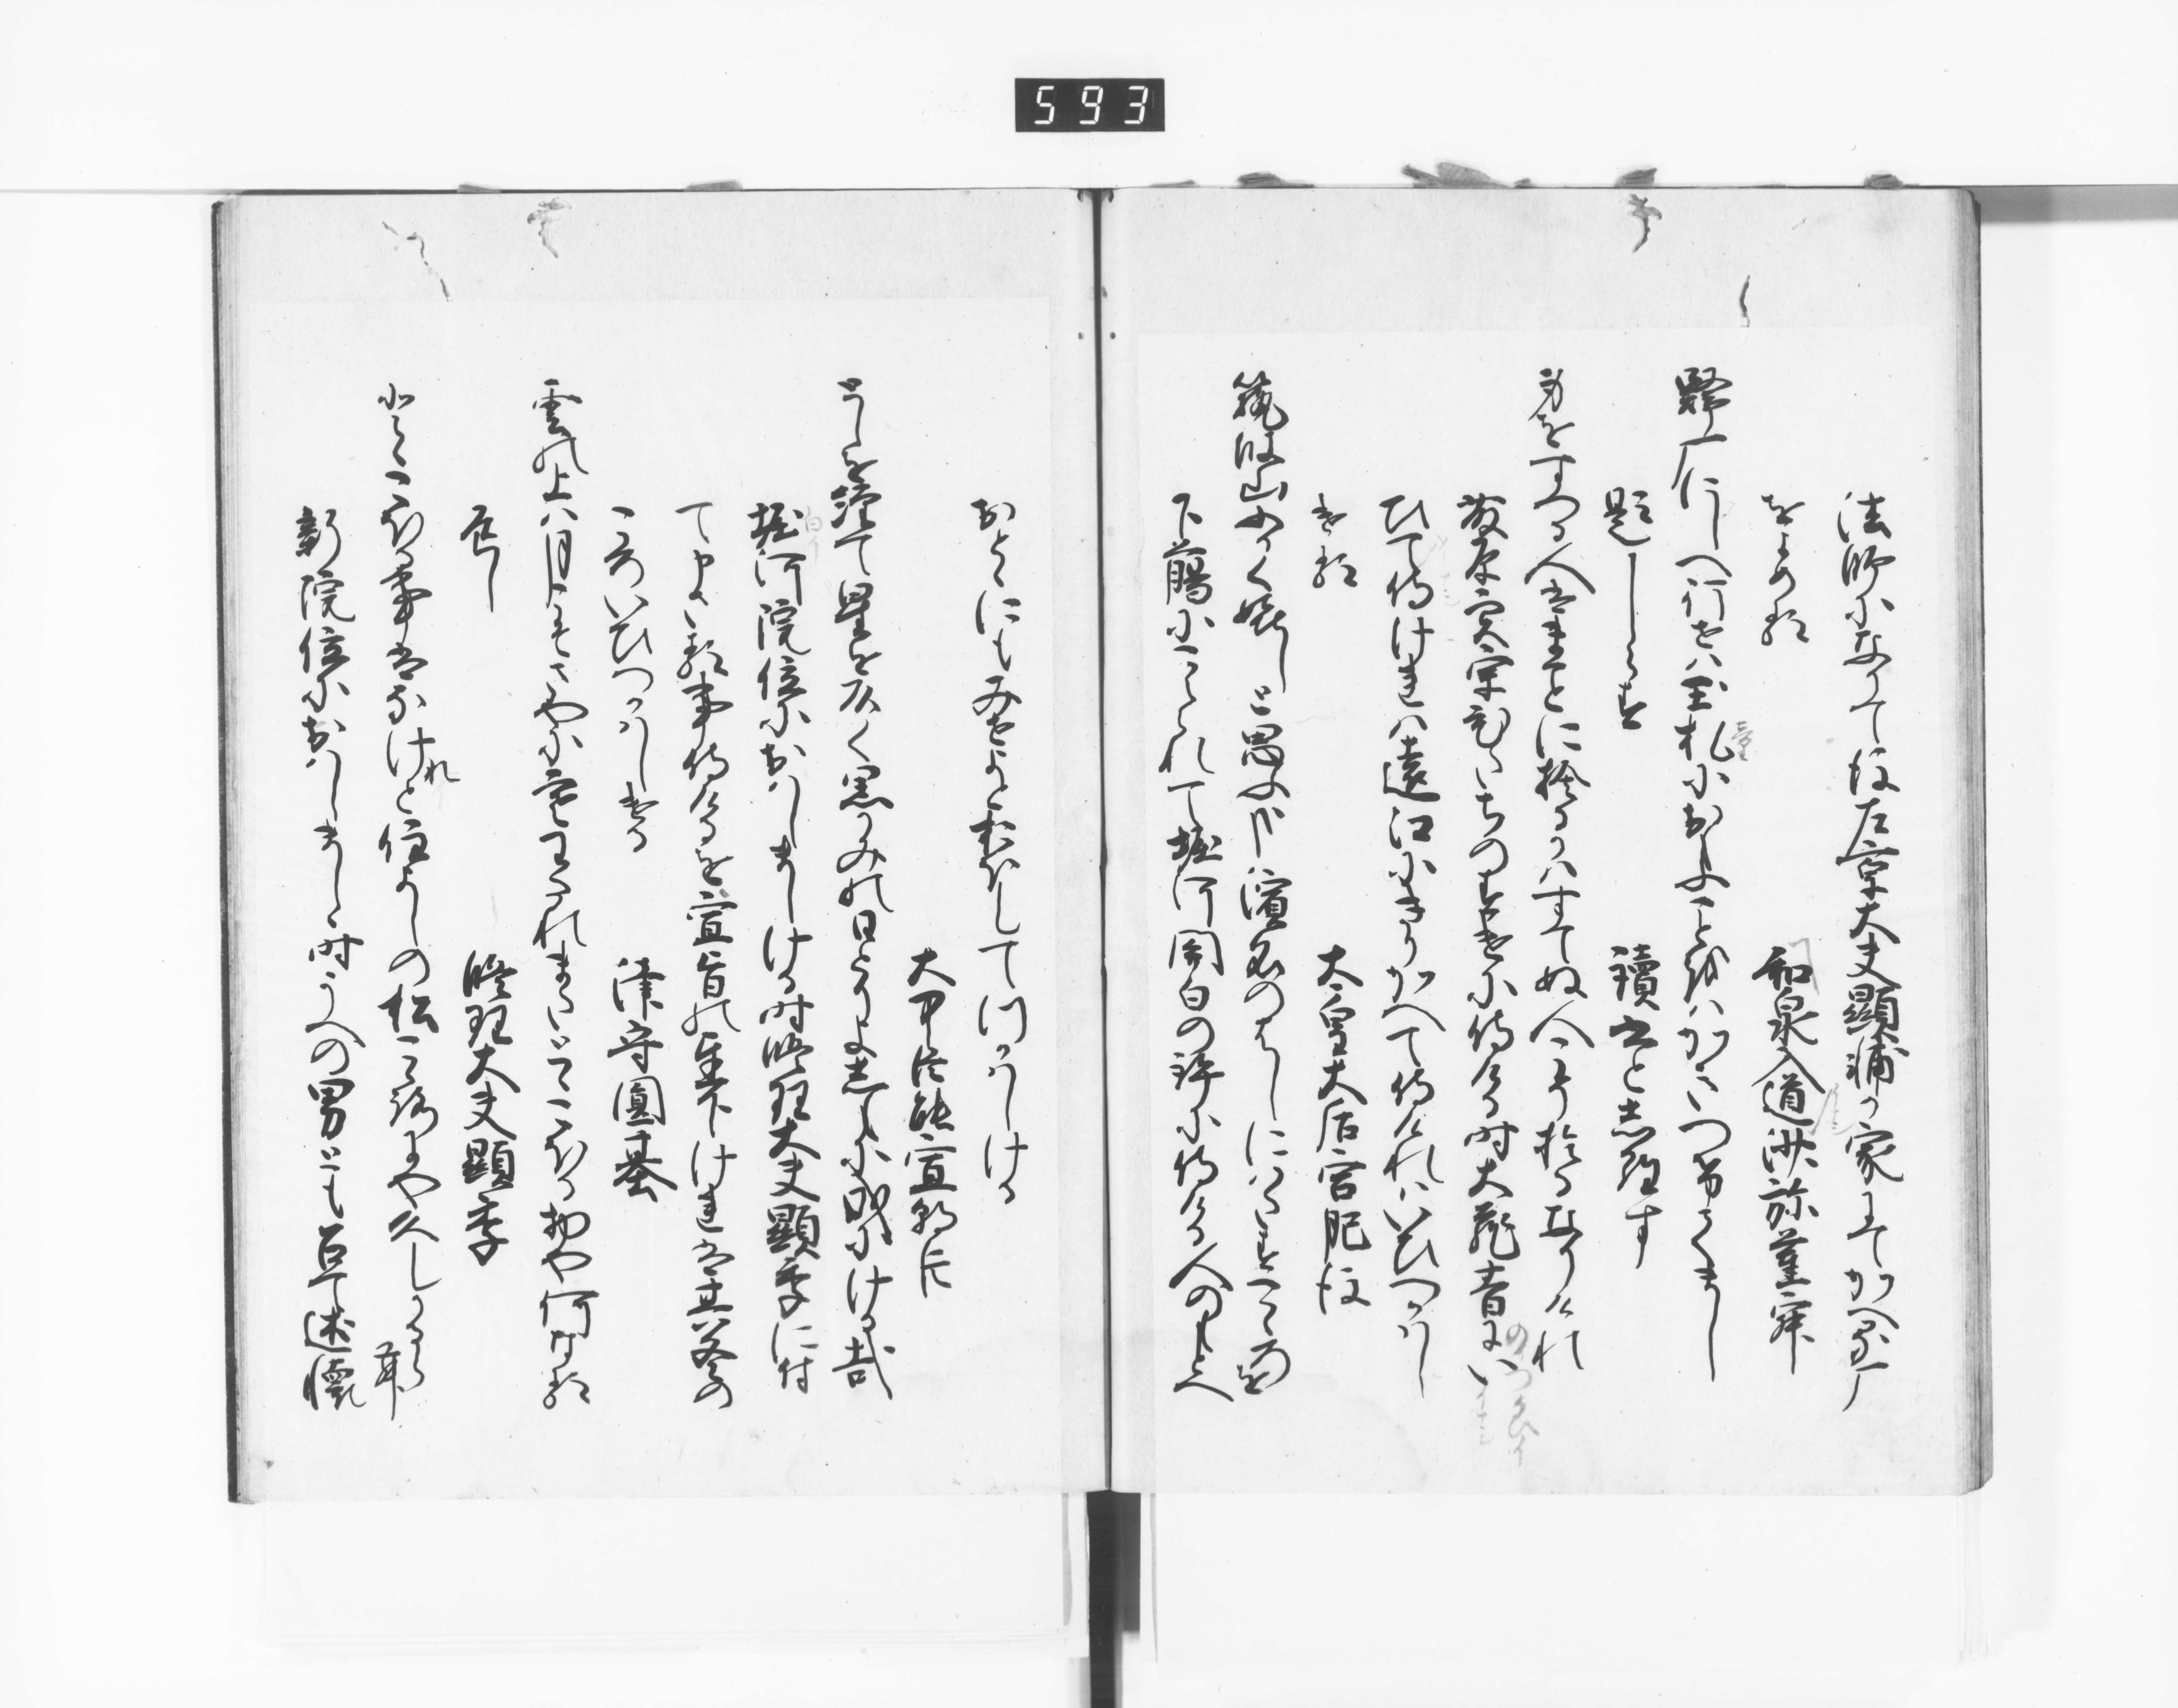 593
法師になりて後左京大夫顕輔か家にてかへる厂
をよめる　和泉入道沙弥蓮寂
帰厂にしへ行せは玉札におもふことをはかきつけてまし
題しらす　讀人志らす
身をすつる人はまことに捨るかはすてぬ人こそ捨るなりけれ
藤原実宗ひたちのすけに侍ける時大蔵省
ひて侍けれは遠江にきりかへて侍けれはいひつかはし
ける　太皇大后宮肥後
筑波山ふかく嬉しと思ふ哉濱名のはしにわたすこゝろを
下臈にこえられて堀河関白の許に侍ける人のもとへ
おとゝにもみせよとおほしくてつかはしける
大中臣能宣朝臣
としを経て星を戴く黒かみのひとより志もに成にける哉
堀河院位におはしましける時修理大夫顕季に付
て申さする事侍けるを宣旨の遅下けれは其冬の
ころいひつかはしける
津守國基
雲の上は月こそさやにさえわたれまたとゝこほる物や何なる
返し　修理大夫顕季
とゝこほる事はなけれと住よしの松こゝろにや久しかるらん
新院位におはしましゝ時うへの男とも召て述懐